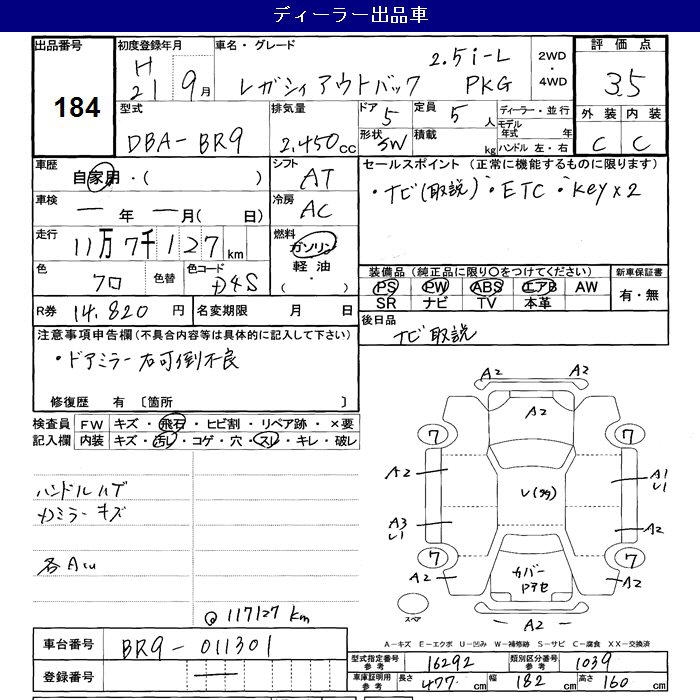 ディーラー出品車
出品番号
184
初度登録年月
H
21 9月
車名・グレード
2.5i-L
レガシィアウトバック PKG
2WD
・
4WD
評価点
3.5
外装 内装
C C
型式
DBA-BR9
排気量
2,450cc
ドア
5
形状
SW
定員
5人
積載
kg
ディーラー・並行
モデル
年式 年
ハンドル 左・右
車歴
自家用・( )
シフト
AT
車検
ー年ー月( 日)
冷房
AC
走行
11万7千127km
燃料
ガソリン
軽油
・( )
色
クロ
色替
色コード
D4S
R券 14,820円
名変期限 月 日
セールスポイント(正常に機能するものに限ります)
・ナビ(取説)・ETC・Key×2
装備品(純正品に限り○をつけてください)
PS PW ABS エアB AW
SR ナビ TV 本革
新車保証書
有・無
後日品
ナビ取説
注意事項申告欄(不具合内容等は具体的に記入して下さい)
・ドアミラー右可倒不良
修復歴 有 〔箇所 〕
検査員
記入欄
FW キズ・飛石・ヒビ割・リペア跡・×要
内装 キズ・汚レ・コゲ・穴・スレ・キレ・破レ
ハンドルハゲ
キズ
117127km
A2 A2
A2
7 7
A2
A1
U1
U(多)
A3
U1
A2
7 7
A2
カバー
A2
スペア
A2
A-キズ E-エクボ U-凹み W-補修跡 S-サビ C-腐食 XX-交換済
車台番号 BR9-011301
登録番号 ー
型式指定番号
参考
16292
類別区分番号
参考
1039
車庫証明用
参考
長さ 477cm 幅 182cm 高さ 160cm